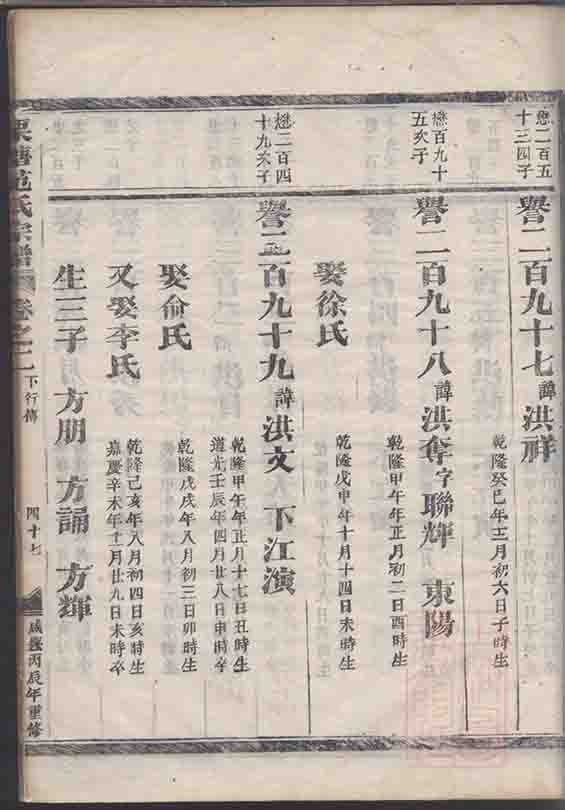 懋二百五
十三四子
譽二百九十七諱洪祥
乾隆癸巳年十二月初六日子時生
懋百九十
五次子
譽二百九十八諱洪奪字聯輝 東陽
乾隆甲午年正月初二日酉時生
娶徐氏
乾隆戊申年十月十四日未時生
懋二百四
十九次子
譽二百九十九諱洪文 下江演
乾隆甲午年正月十七日丑時生
道光壬辰年四月廿八日申時卒
娶俞氏
乾隆戊戌年八月初三日卯時生
又娶李氏
乾隆己亥年八月初四日亥時生
嘉慶辛未年十一月廿九日未時卒
生三子 方朋 方誦 方輝
范氏宗譜 卷之二 下行傳 四十七 咸豐丙辰年重修